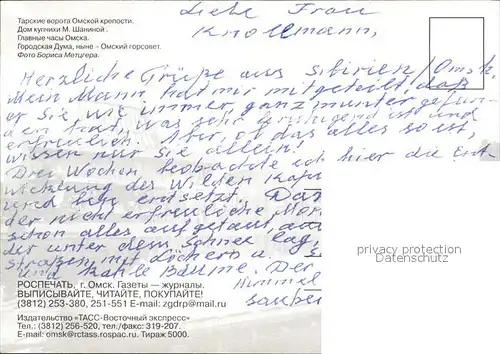 Тарские ворота Омской крепости.
Дом купчихи М. Шаниной.
Главные часы Омска.
Городская Дума, ныне - Омский горсовет.
Фото Бориса Метцгера.
Liebe Frau
Knollmann,
Herzliche Grüße aus Sibirien / Omsk.
Mein Mann hat mir mitgeteilt, daß
er Sie wie immer, ganz munter gefun-
den hat, was sehr beruhigend ist und
erfreulich. Aber, ob das alles so ist,
wissen nur Sie allein!
Drei Wochen beobachte ich hier die Ent
wicklung des Wilden Kapi
und bin entsetzt. Dan
der nicht erfreuliche Mon
schon alles aufgetaut,
der unter dem Schnee lag,
Straßen mit Löchern u.
und kahle Bäume. Der
Himmel
sauber
privacy protection
AnsichtskartenVersand
РОСПЕЧАТЬ, г. Омск. Газеты — журналы.
ВЫПИСЫВАЙТЕ, ЧИТАЙТЕ, ПОКУПАЙТЕ!
(3812) 253-380, 251-551 E-mail: zgdrp@mail.ru
Издательство «ТАСС-Восточный экспресс»
Тел.: (3812) 256-520, тел./факс: 319-207.
E-mail: omsk@rctass.rospac.ru. Тираж 5000.